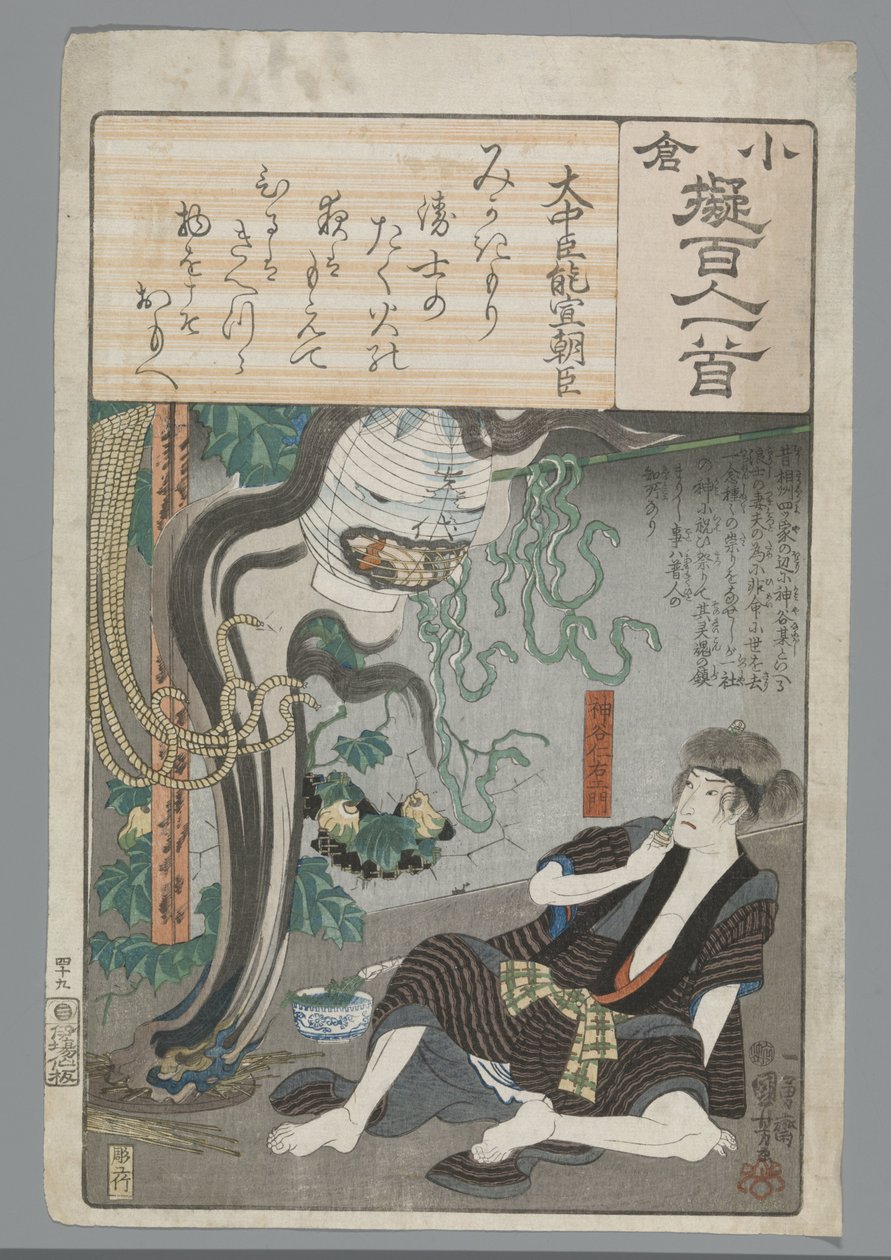 小倉
擬百人一首
大中臣能宣朝臣
みかきもり
衛士の
たく火の
夜はもえて
ひるは
きえつゝ
物をこそ
おもへ
昔相州四ツ家の辺に神谷某といへる
浪士の妻夫の為に非命に世を去
一念種々の祟りをなせしが一社
の神に祝ひ祭りて其灵魂の鎮
まりし事ハ普人の
知所なり
神谷仁右エ門
一勇齋
國芳画
四十九
伊場仙板